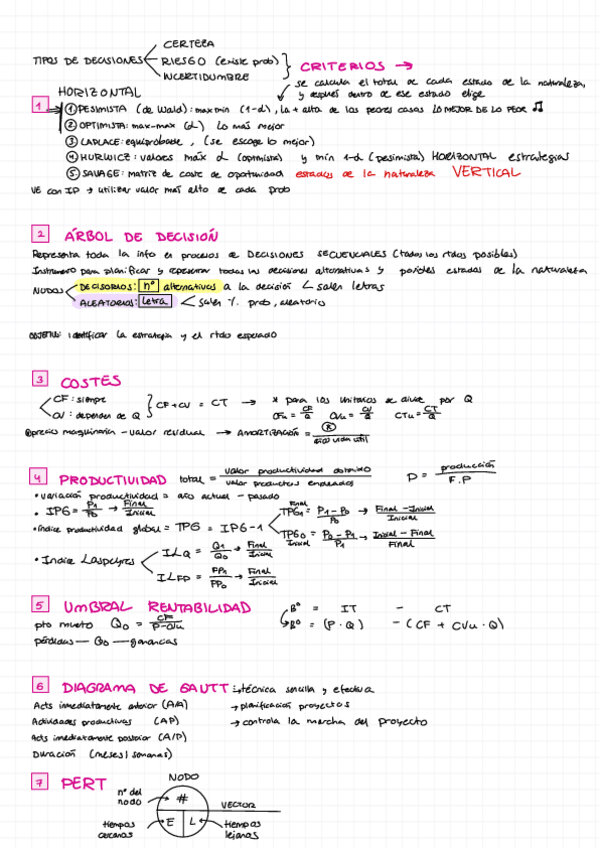 CERTEZA
TIPOS DE DECISIONES RIESGO (existe prob) CRITERIOS →
INCERTIDUMBRE
se calcula el total de cada estado de la naturaleza,
y después dentro de ese estado elige
HORIZONTAL
1 ① PESIMISTA (de Wald): max min (1-α), La + alta de los peores casos LO MEJOR DE LO PEOR
② OPTIMISTA: max-max (α) lo más mejor
③ LAPLACE: equiprobable, (se escoge lo mejor)
④ HURWICZ: valores máx α (optimista) y mín 1-α (pesimista) HORIZONTAL estrategias
⑤ SAVAGE: matriz de coste de oportunidad estados de la naturaleza VERTICAL
VE con IP → utilizar valor más alto de cada prob
2 ÁRBOL DE DECISIÓN
Representa toda la info en procesos de DECISIONES SECUENCIALES (todos los rtdos posibles)
Instrumento para planificar y representar todas las decisiones alternativas y posibles estados de la naturaleza
NUDOS DECISORIOS: nº alternativas a la decisión < salen letras
ALEATORIOS: letra < salen %. prob, aleatorio
OBJETIVO: identificar la estrategia y el rtdo esperado
3 COSTES
CF: siempre
CV: depende de Q } CF + CV = CT → * para los unitarios se divide por Q
CFu = CF/Q CVu = CV/Q CTu = CT/Q
®precio maquinaria - valor residual → AMORTIZACIÓN = ®/años vida útil
4 PRODUCTIVIDAD total = valor productividad obtenido / valor productos empleados P = producción / F.P
• variación productividad = año actual - pasado
• IPG = P1/P0 → Final/Inicial
• índice productividad global = TPG = IPG - 1
Final TPG1 = P1 - P0 / P0 → Final - Inicial / Inicial
Inicial TPG0 = P0 - P1 / P1 → Inicial - Final / Final
• Indice Laspeyres
ILQ = Q1/Q0 → Final/Inicial
ILFP = FP1/FP0 → Final/Inicial
5 UMBRAL RENTABILIDAD Bº = IT - CT
pto muerto Q0 = CF / P-CVu Bº = (P · Q) - (CF + CVu · Q)
pérdidas — Q0 — ganancias
6 DIAGRAMA DE GAUTT: → técnica sencilla y efectiva
Acts inmediatamente anterior (A/A) → planificación proyectos
Actividades productivas (AP) → controla la marcha del proyecto
Acts inmediatamente posterior (A/P)
Duración (meses/semanas)
7 PERT
NODO
nº del nodo → #
VECTOR
E L
tiempos cercanos
tiempos lejanos